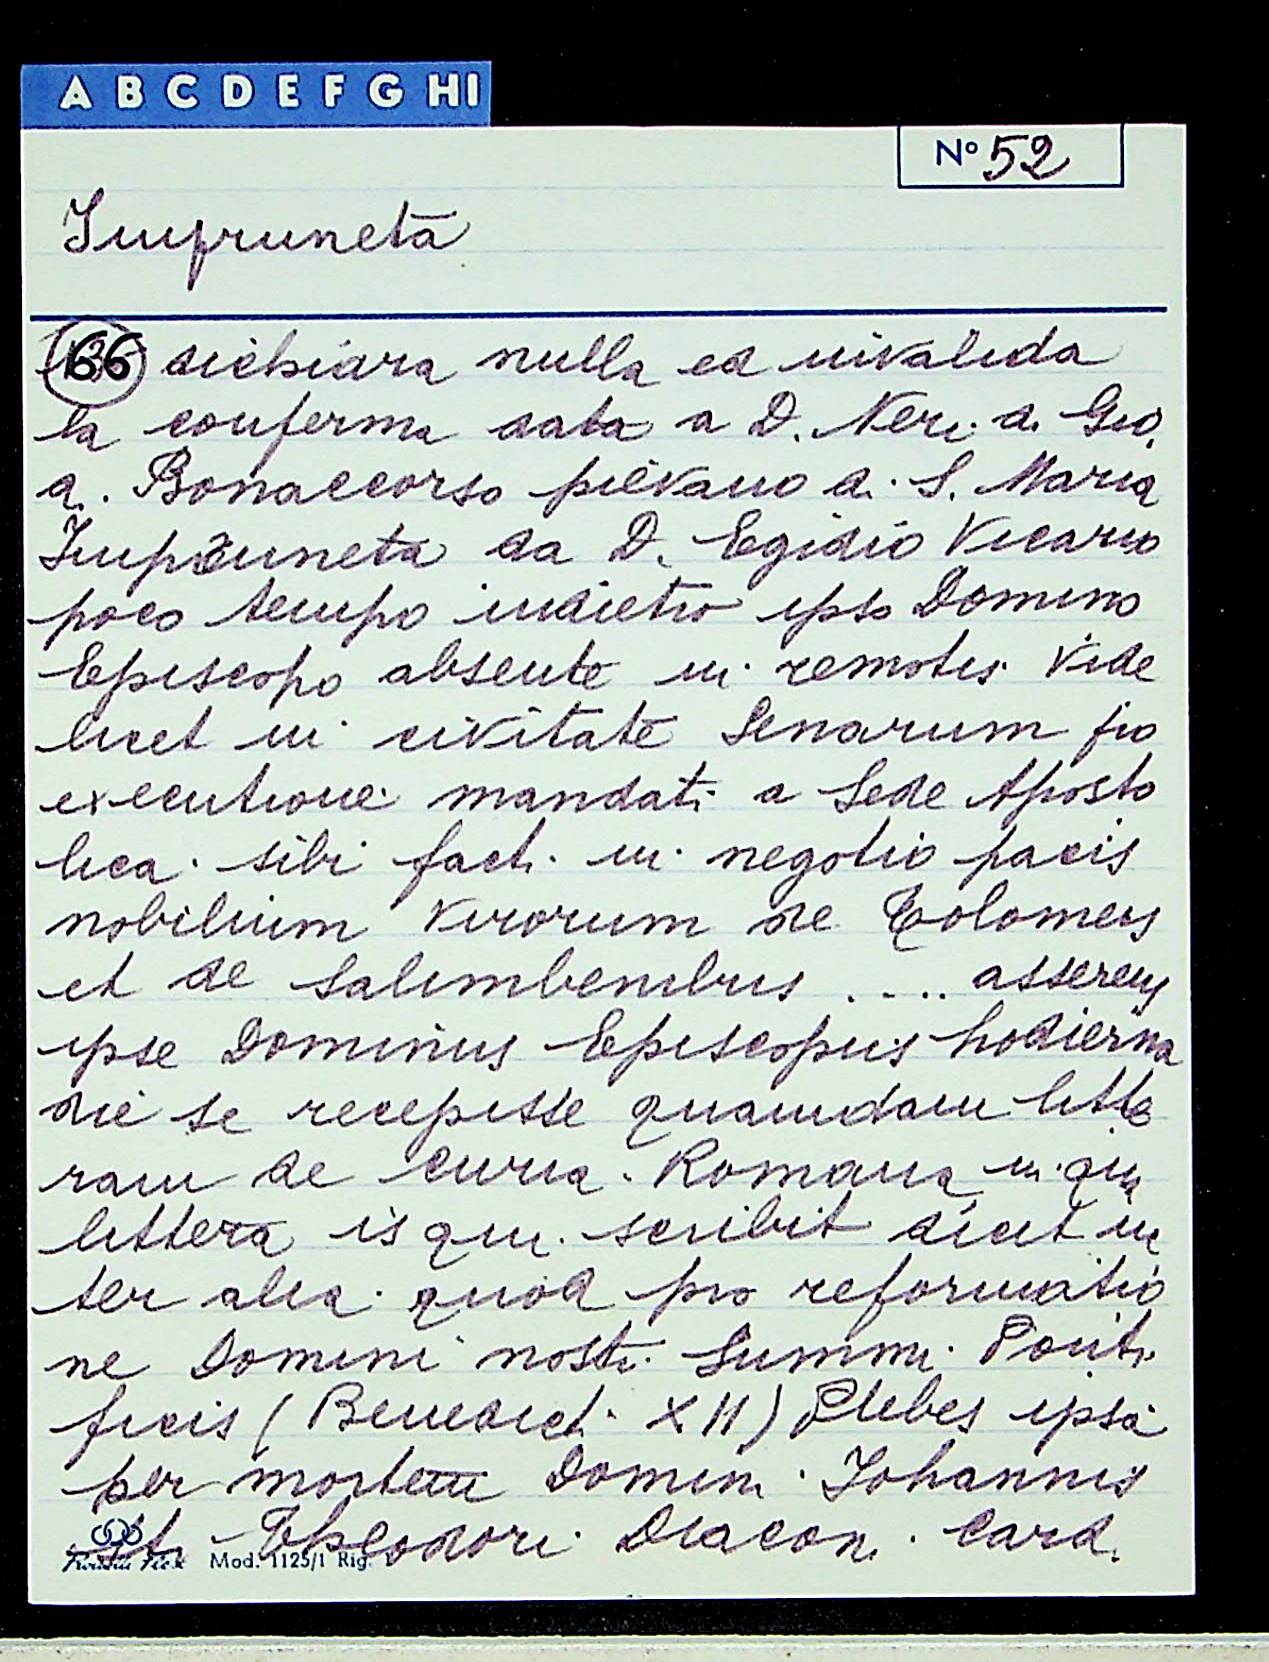 A B C D E F G H I
Nº 52
Impruneta
66 dichiara nulla ed invalida
la conferma data a D. Neri di Gio.
di Bonaccorso pievano di S. Maria
Impruneta da D. Egidio Vicario
poco tempo indietro ipso Domino
Episcopo absente in remotis vide
licet in civitate Senarum pro
executione mandati a Sede Aposto
lica sibi facti in negotio pacis
nobilium virorum de Tolomeis
et de Salimbenibus .... asserens
ipse Dominus Episcopus hodierna
die se recepisse quamdam litte
ram de Curia Romana in qua
littera is qui scribit dicit in
ter alia quod pro reformatio
ne Domini nostri Summi Ponti
ficis (Benedicti XII) Plebes ipsa
per mortem Domini Johannis
Sti Theodori Diaconi Card.
Mod. 1125/1 Rig.